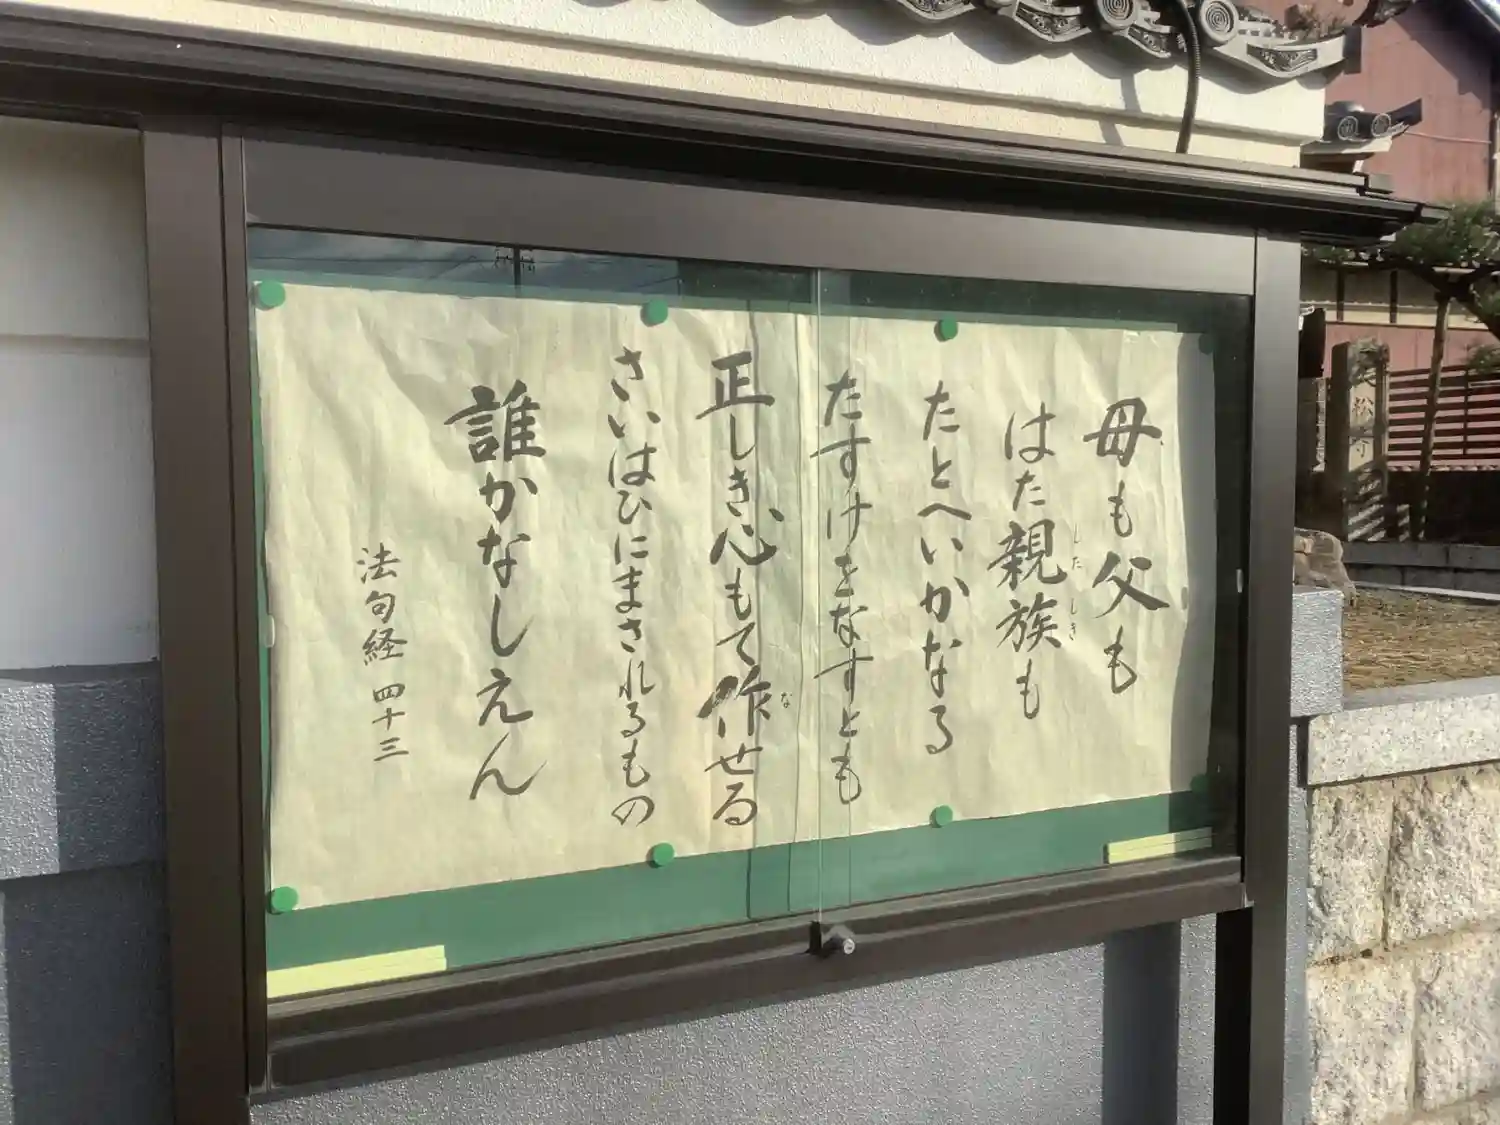 母も父も
はた親族も
したしき
たとへいかなる
たすけをなすとも
正しき心もて作せる
な
さいはひにまされるもの
誰かなしえん
法句経 四十三